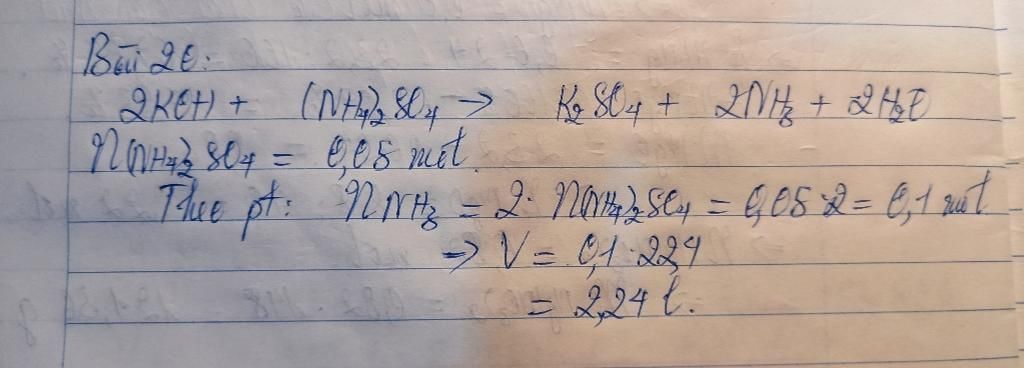 Bài 20:
2KOH + (NH₄)₂SO₄ → K₂SO₄ + 2NH₃ + 2H₂O
n(NH₄)₂SO₄ = 0,05 mol.
Theo pt: nNH₃ = 2. n(NH₄)₂SO₄ = 0,05.2 = 0,1 mol
→ V = 0,1.22,4
= 2,24 l.